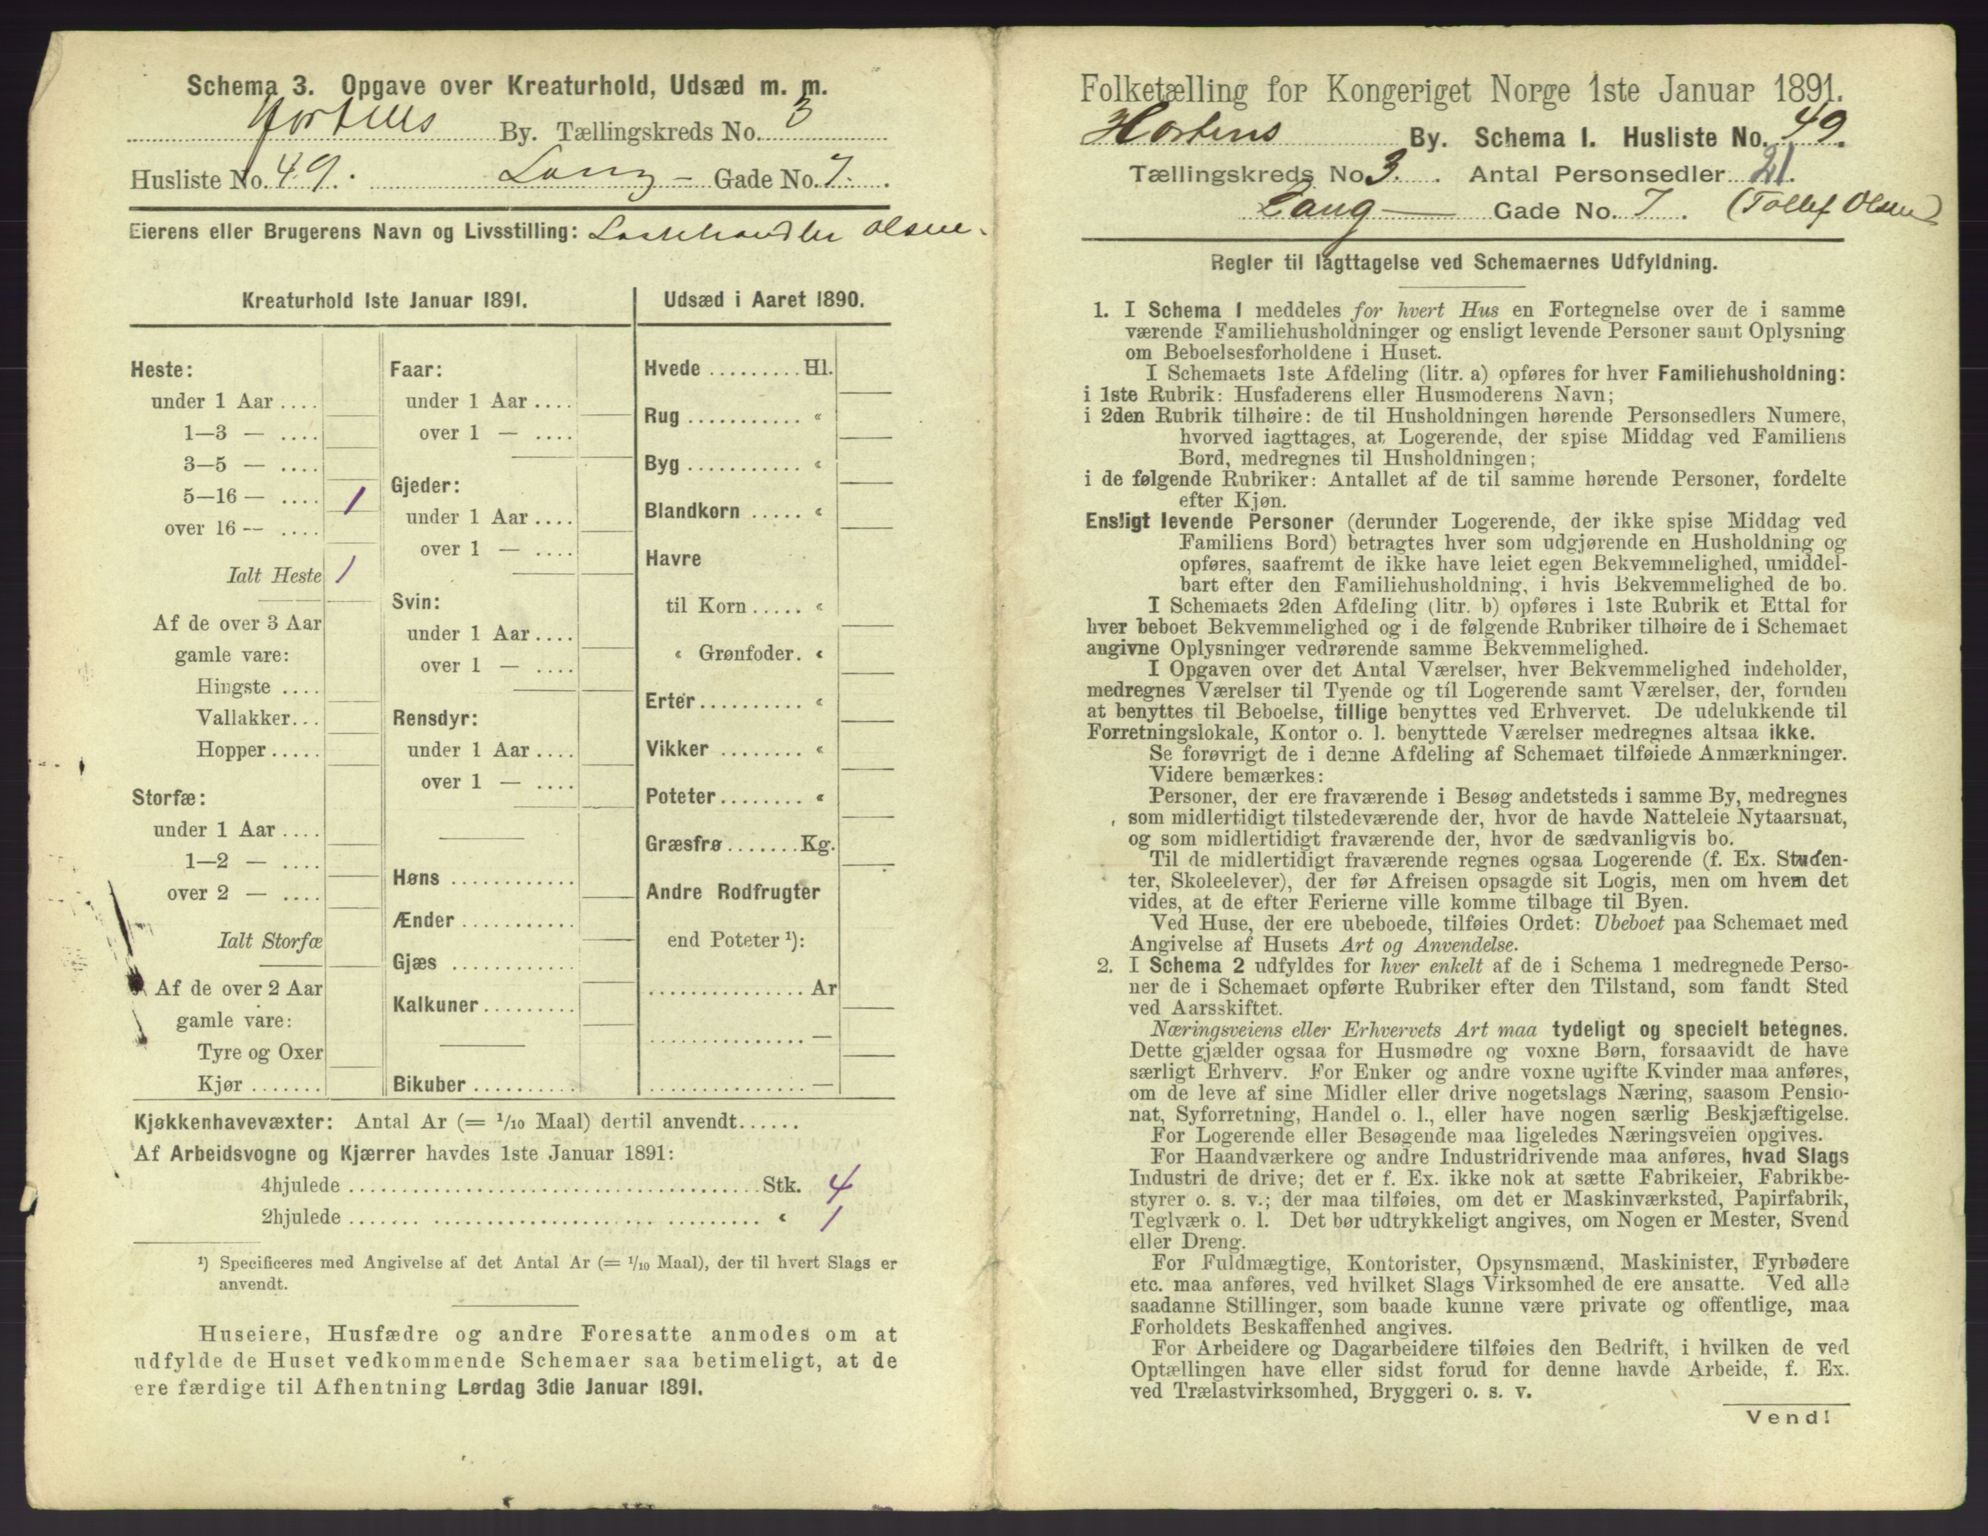 Schema 3. Opgave over Kreaturhold, Udsæd m. m.
Hortens By. Tællingskreds No. 3
Husliste No. 49. Lang — Gade No. 7.
Eierens eller Brugerens Navn og Livsstilling: Lastehandler Olsen.
Kreaturhold 1ste Januar 1891.
Heste:
under 1 Aar ....
1—3 — ....
3—5 — ....
5—16 — .... 1
over 16 — ....
Ialt Heste 1
Af de over 3 Aar
gamle vare:
Hingste ....
Vallakker...
Hopper .....
Storfæ:
under 1 Aar ....
1—2 — ....
over 2 — ....
Ialt Storfæ
Af de over 2 Aar
gamle vare:
Tyre og Oxer
Kjør .......
Faar:
under 1 Aar ....
over 1 — ....
Gjeder:
under 1 Aar ....
over 1 — ....
Svin:
under 1 Aar ....
over 1 — ....
Rensdyr:
under 1 Aar ....
over 1 — ....
Høns ............
Ænder ...........
Gjæs ............
Kalkuner.........
Bikuber ..........
Udsæd i Aaret 1890.
Hvede ......... Hl.
Rug ........... «
Byg ........... «
Blandkorn ..... «
Havre
til Korn ..... «
« Grønfoder. «
Erter.......... «
Vikker ........ «
Poteter........ «
Græsfrø .......Kg.
Andre Rodfrugter
end Poteter ¹):
............... Ar
............... —
............... —
Kjøkkenhavevæxter: Antal Ar (= 1/10 Maal) dertil anvendt......
Af Arbeidsvogne og Kjærrer havdes 1ste Januar 1891:
4hjulede ........................................ Stk. 4
2hjulede ........................................ « 1
¹) Specificeres med Angivelse af det Antal Ar (= 1/10 Maal), der til hvert Slags er
anvendt.
Huseiere, Husfædre og andre Foresatte anmodes om at
udfylde de Huset vedkommende Schemaer saa betimeligt, at de
ere færdige til Afhentning Lørdag 3die Januar 1891.
Folketælling for Kongeriget Norge 1ste Januar 1891.
Hortens By. Schema 1. Husliste No. 49.
Tællingskreds No. 3. Antal Personsedler 21.
Lang — Gade No. 7. (Tollef Olsen)
Regler til Iagttagelse ved Schemaernes Udfyldning.
1. I Schema 1 meddeles for hvert Hus en Fortegnelse over de i samme
værende Familiehusholdninger og ensligt levende Personer samt Oplysning
om Beboelsesforholdene i Huset.
I Schemaets 1ste Afdeling (litr. a) opføres for hver Familiehusholdning:
i 1ste Rubrik: Husfaderens eller Husmoderens Navn;
i 2den Rubrik tilhøire: de til Husholdningen hørende Personsedlers Numere,
hvorved iagttages, at Logerende, der spise Middag ved Familiens
Bord, medregnes til Husholdningen;
i de følgende Rubriker: Antallet af de til samme hørende Personer, fordelte
efter Kjøn.
Ensligt levende Personer (derunder Logerende, der ikke spise Middag ved
Familiens Bord) betragtes hver som udgjørende en Husholdning og
opføres, saafremt de ikke have leiet egen Bekvemmelighed, umiddel-
bart efter den Familiehusholdning, i hvis Bekvemmelighed de bo.
I Schemaets 2den Afdeling (litr. b) opføres i 1ste Rubrik et Ettal for
hver beboet Bekvemmelighed og i de følgende Rubriker tilhøire de i Schemaet
angivne Oplysninger vedrørende samme Bekvemmelighed.
I Opgaven over det Antal Værelser, hver Bekvemmelighed indeholder,
medregnes Værelser til Tyende og til Logerende samt Værelser, der, foruden
at benyttes til Beboelse, tillige benyttes ved Erhvervet. De udelukkende til
Forretningslokale, Kontor o. l. benyttede Værelser medregnes altsaa ikke.
Se forøvrigt de i denne Afdeling af Schemaet tilføiede Anmærkninger.
Videre bemærkes:
Personer, der ere fraværende i Besøg andetsteds i samme By, medregnes
som midlertidigt tilstedeværende der, hvor de havde Natteleie Nytaarsnat,
og som midlertidigt fraværende der, hvor de sædvanligvis bo.
Til de midlertidigt fraværende regnes ogsaa Logerende (f. Ex. Studen-
ter, Skoleelever), der før Afreisen opsagde sit Logis, men om hvem det
vides, at de efter Ferierne ville komme tilbage til Byen.
Ved Huse, der ere ubeboede, tilføies Ordet: Ubeboet paa Schemaet med
Angivelse af Husets Art og Anvendelse.
2. I Schema 2 udfyldes for hver enkelt af de i Schema 1 medregnede Perso-
ner de i Schemaet opførte Rubriker efter den Tilstand, som fandt Sted
ved Aarsskiftet.
Næringsveiens eller Erhvervets Art maa tydeligt og specielt betegnes.
Dette gjælder ogsaa for Husmødre og voxne Børn, forsaavidt de have
særligt Erhverv. For Enker og andre voxne ugifte Kvinder maa anføres,
om de leve af sine Midler eller drive nogetslags Næring, saasom Pensio-
nat, Syforretning, Handel o. l., eller have nogen særlig Beskjæftigelse.
For Logerende eller Besøgende maa ligeledes Næringsveien opgives.
For Haandværkere og andre Industridrivende maa anføres, hvad Slags
Industri de drive; det er f. Ex. ikke nok at sætte Fabrikeier, Fabrikbe-
styrer o. s. v.; der maa tilføies, om det er Maskinværksted, Papirfabrik,
Teglværk o. l. Det bør udtrykkeligt angives, om Nogen er Mester, Svend
eller Dreng.
For Fuldmægtige, Kontorister, Opsynsmænd, Maskinister, Fyrbødere
etc. maa anføres, ved hvilket Slags Virksomhed de ere ansatte. Ved alle
saadanne Stillinger, som baade kunne være private og offentlige, maa
Forholdets Beskaffenhed angives.
For Arbeidere og Dagarbeidere tilføies den Bedrift, i hvilken de ved
Optællingen have eller sidst forud for denne havde Arbeide, f. Ex.
ved Trælastvirksomhed, Bryggeri o. s. v.
Vend!